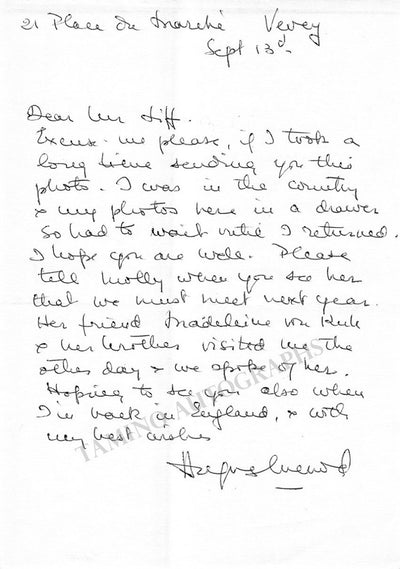 21 Place du Marché Vevey
Sept 13d.
Dear Mr
Excuse me please, if I took a
long time sending you this
photo. I was in the country
& my photos here in a drawer
so had to wait until I returned.
I hope you are well. Please
tell Molly when you see her
that we must meet next year.
Her friend Madeleine von
& her brother visited me the
other day & we spoke of her.
Hoping to see you also when
I'm back in England, & with
my best wishes
TAMINO AUTOGRAPHS